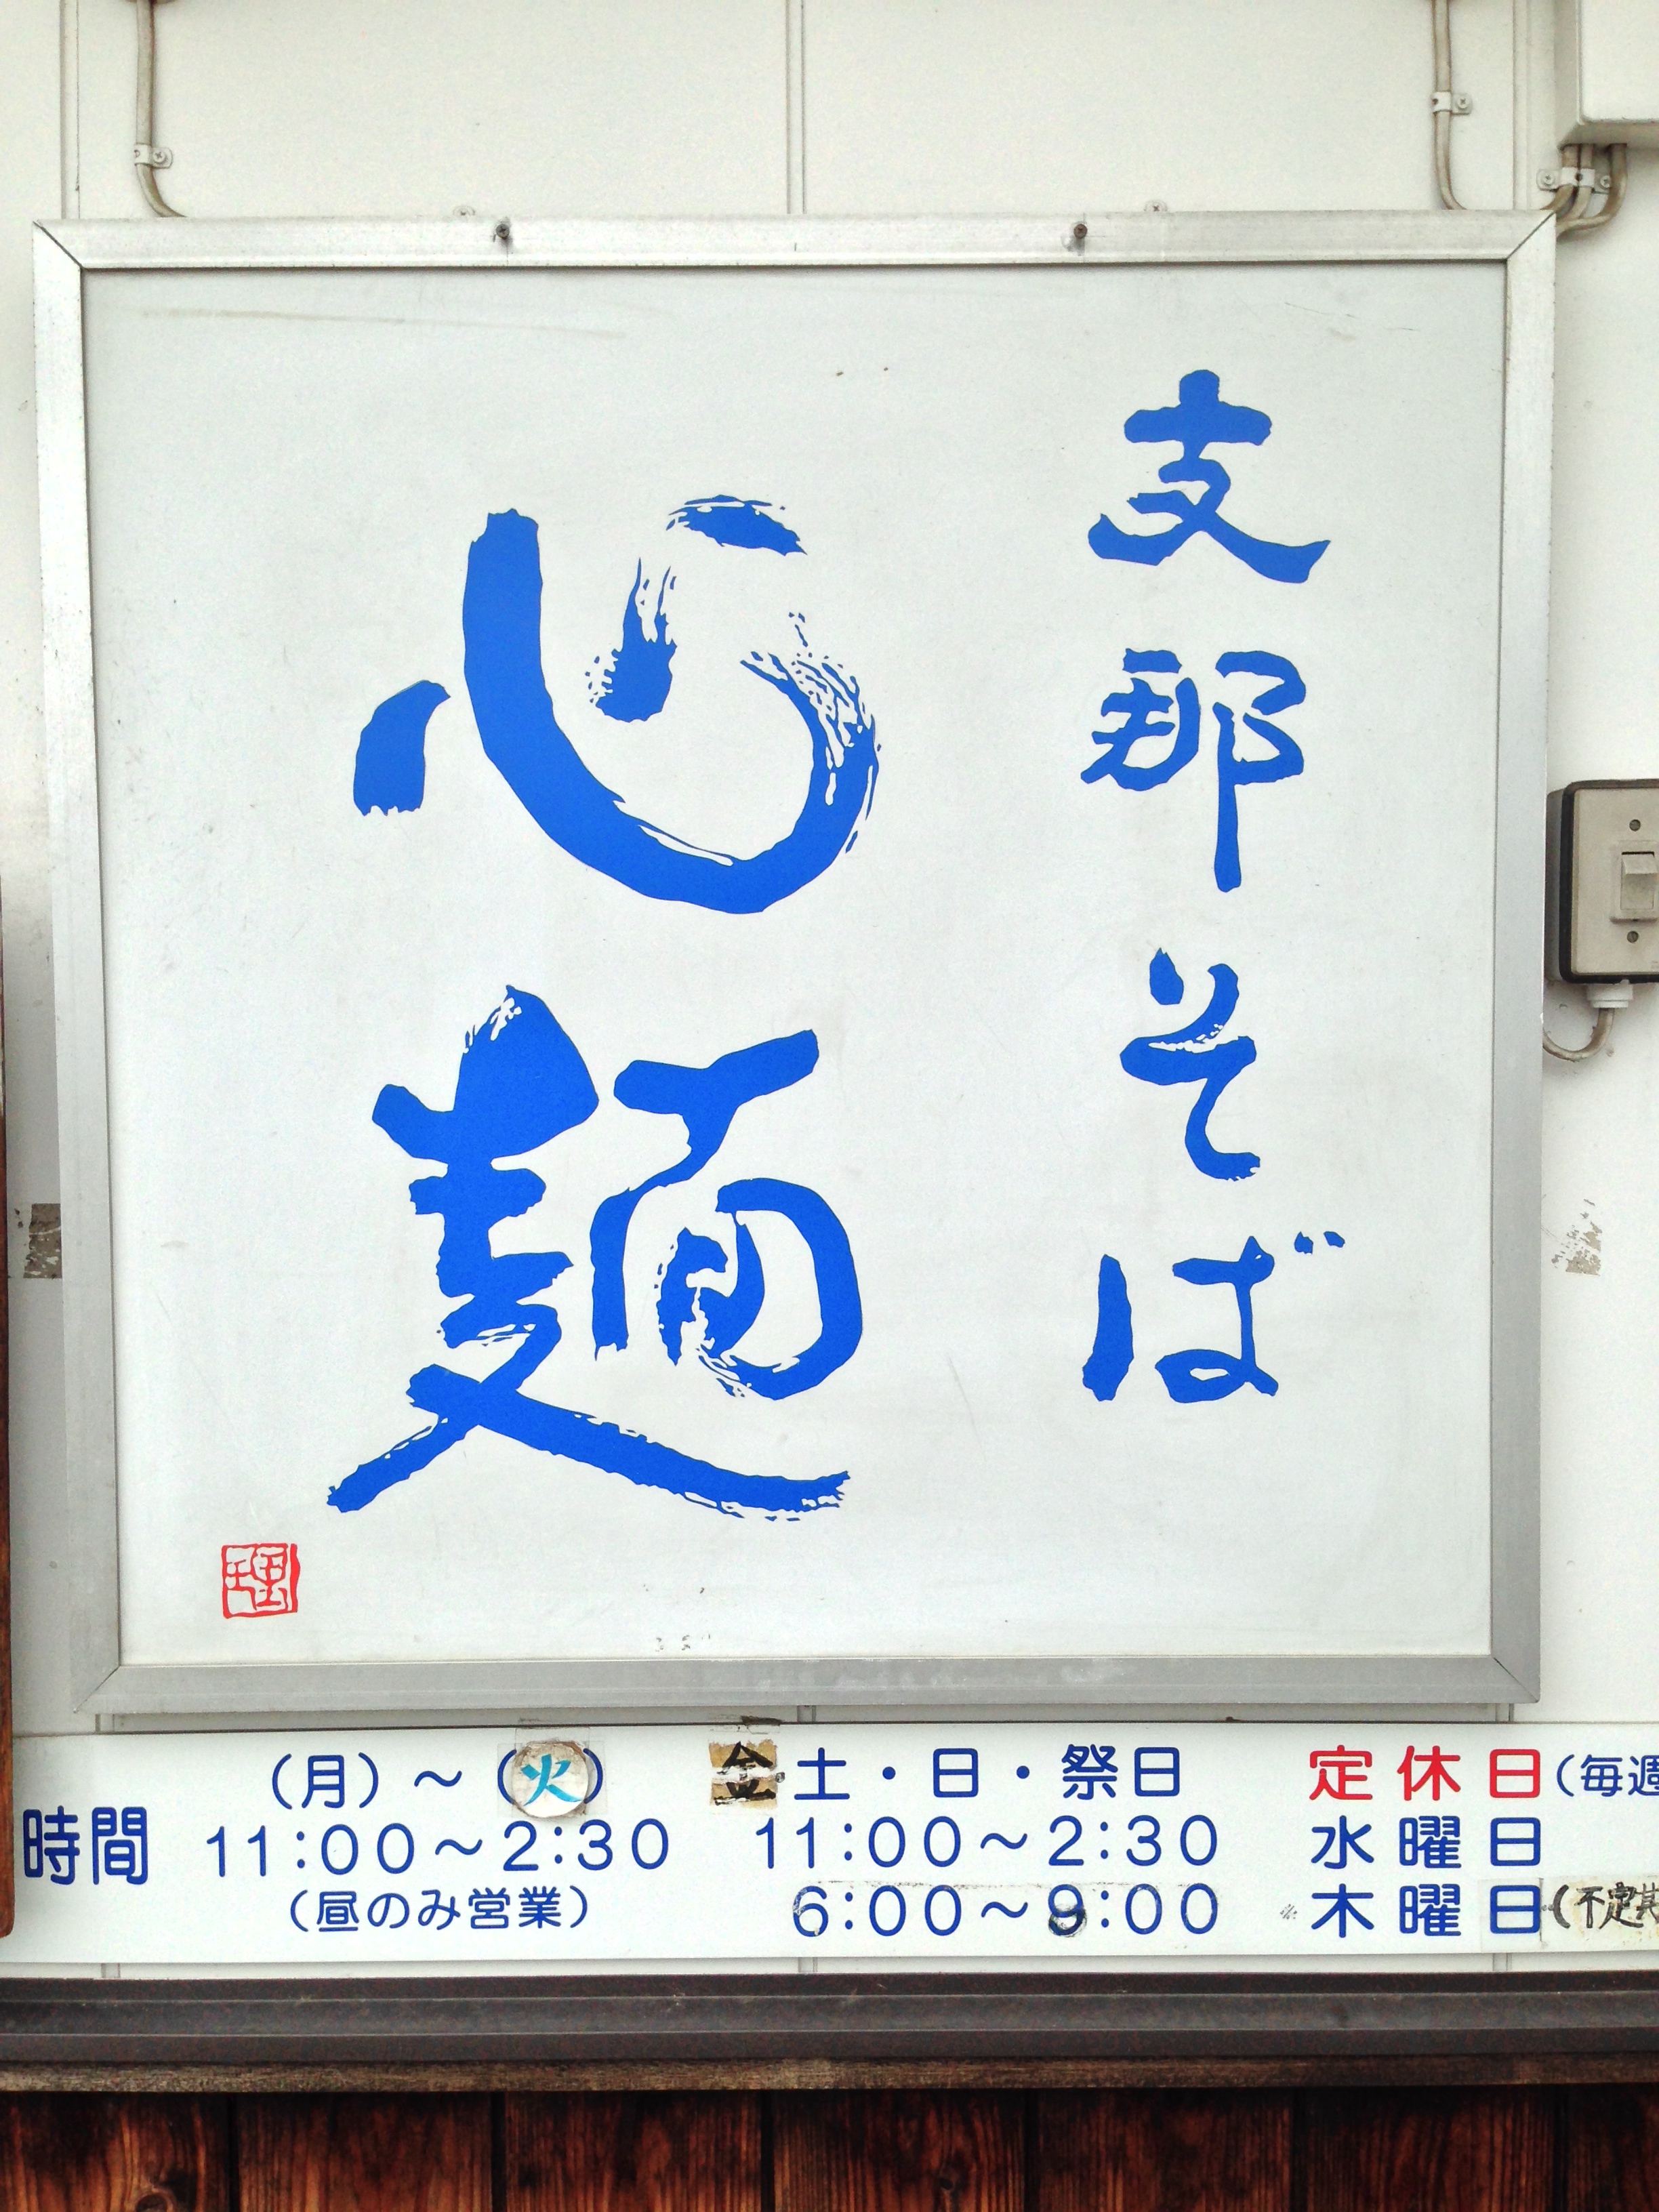 支那そば
心麺
時間
(月)～(火)
11:00～2:30
(昼のみ営業)
金・土・日・祭日
11:00～2:30
6:00～9:00
定休日(毎週
水曜日
木曜日(不定期